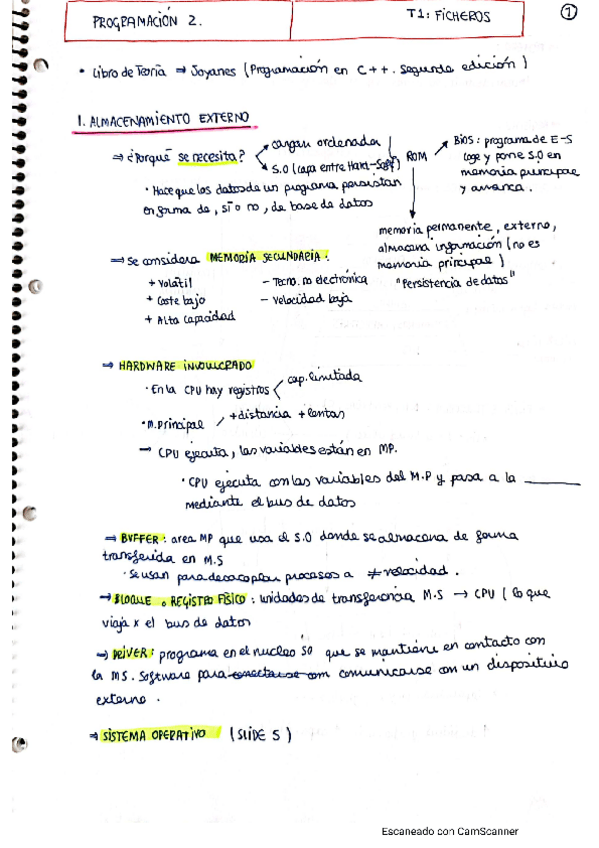 PROGRAMACIÓN 2.
T1: FICHEROS
1
• Libro de Teoría ⇒ Joyanes (Programación en C++. Segunda edición)
1. ALMACENAMIENTO EXTERNO
⇒ ¿Porqué se necesita?
cargan ordenador
S.O (capa entre Hard-Soft)
ROM
BIOS: programa de E-S
coge y pone S.O en
memoria principal
y arranca.
• Hace que los datos de un programa persistan
en forma de, sí o no, de base de datos
memoria permanente, externo,
almacena información (no es
memoria principal)
"Persistencia de datos"
⇒ Se considera MEMORIA SECUNDARIA:
+ Volátil
+ Coste bajo
+ Alta capacidad
- Tecno. no electrónica
- Velocidad baja
⇒ HARDWARE INVOLUCRADO
• En la CPU hay registros
cap. limitada
• M. principal
+ distancia + lentas
→ CPU ejecuta, las variables están en MP.
• CPU ejecuta con las variables del M.P y pasa a la ________
mediante el bus de datos
⇒ BUFFER: area MP que usa el S.O donde se almacena de forma
transferida en M.S
• Se usan para desacoplar procesos a ≠ velocidad.
→ BLOQUE o REGISTRO FÍSICO: unidades de transferencia M.S → CPU (lo que
viaja x el bus de datos
⇒ DRIVER: programa en el nucleo SO que se mantiene en contacto con
la MS. Software para conectarse com comunicarse con un dispositivo
externo.
⇒ SISTEMA OPERATIVO (SLIDE 5)
Escaneado con CamScanner